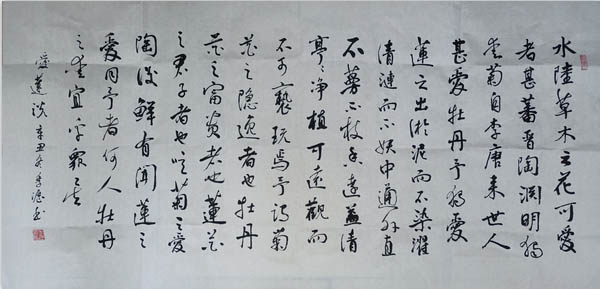 水陸草木之花可愛
者甚蕃晋陶渊明獨
爱菊自李唐来世人
甚愛牡丹予獨愛
蓮之出淤泥而不染濯
清漣而不妖中通外直
不蔓不枝香遠益清
亭々净植可遠觀而
不可褻玩焉予谓菊
花之隐逸者也牡丹
花之富贵者也蓮花
之君子者也噫菊之愛
陶後鮮有闻蓮之
愛同予者何人牡丹
之爱宜乎眾矣
愛蓮说辛丑冬书